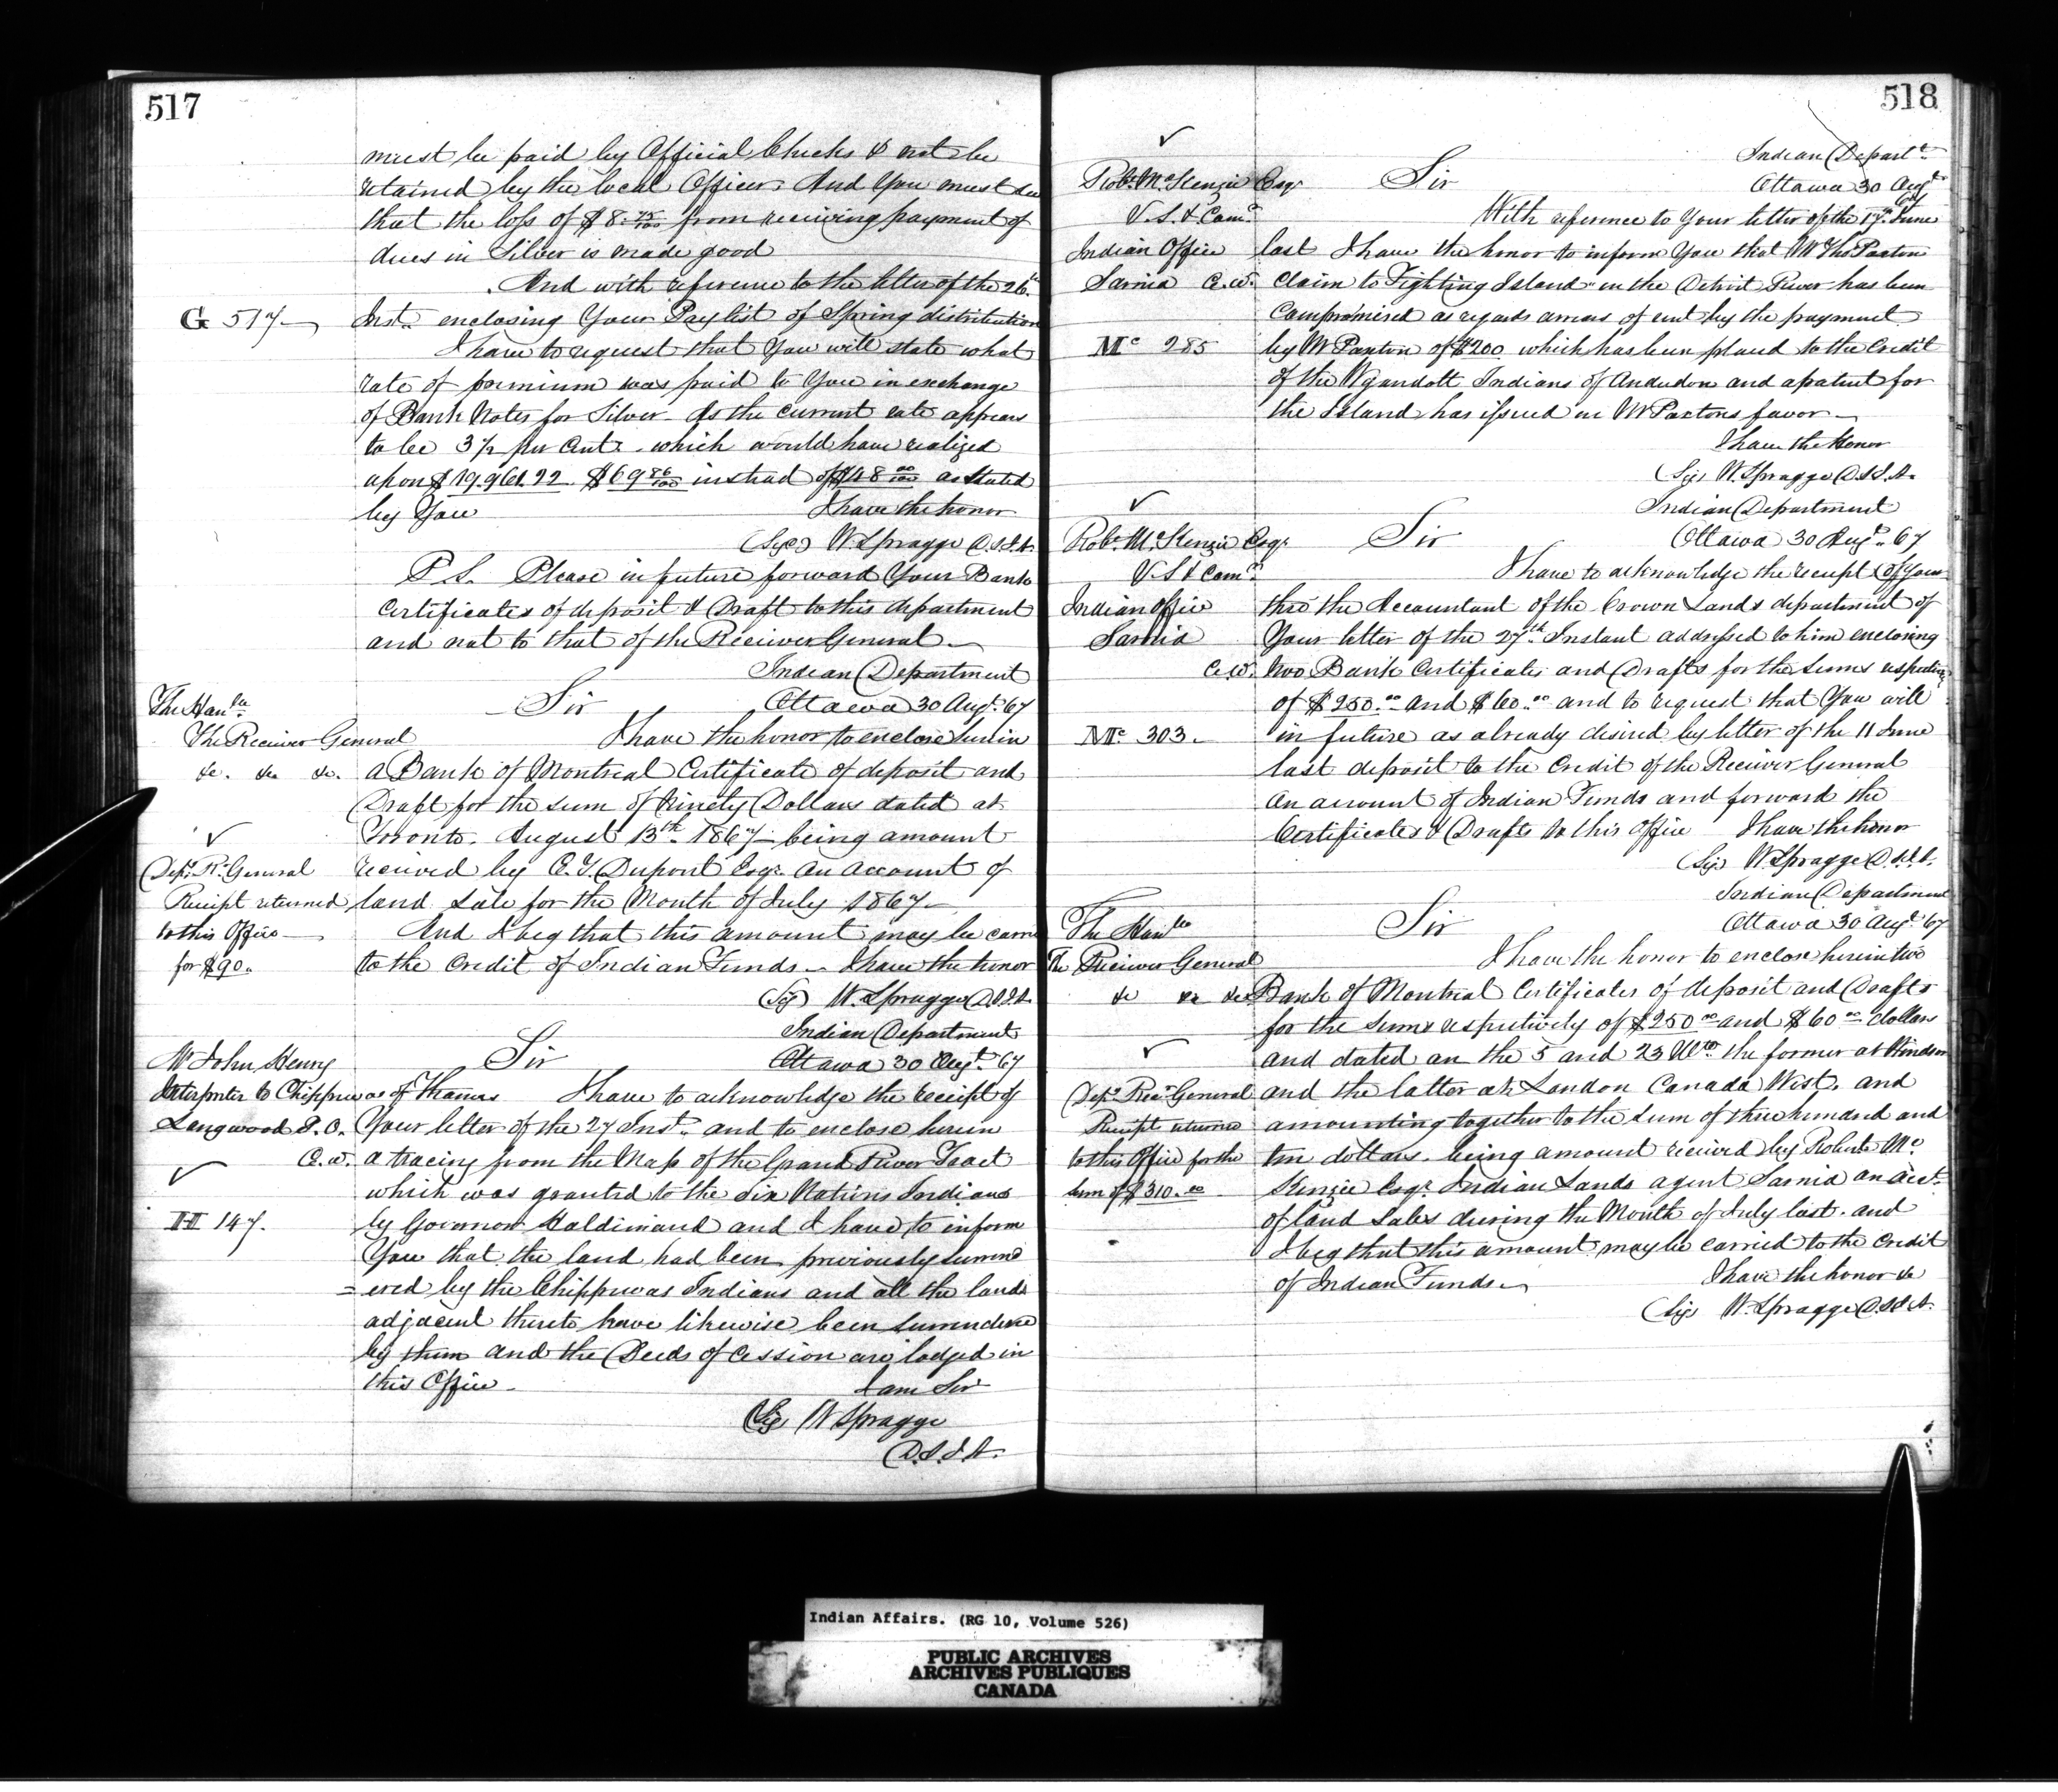 517
must be paid by Official Checks & not be
retained by the local Officer. And You must see
that the loss of $8.75/100 from receiving payment of
dues in Silver is made good
And with reference to the letter of the 26th
G 517
Inst. enclosing Your Paylist of Spring distribution
I have to request that You will state what
rate of premium was paid to You in exchange
of Bank Notes for Silver. As the current rate appears
to be 3½ per Cent. which would have realized
upon $19.961.22 $69 86/100 instead of $48 00/100 as stated
by You I have the honor
(Sigd) W. Spragge D.S.I.A.
P.S. Please in future forward Your Bank
Certificates of deposit & Draft to this department
and not to that of the Receiver General
Indian Department
The Honble Sir Ottawa 30 Augt 67
The Receiver General I have the honor to enclose herein
&c. &c &c. a Bank of Montreal Certificate of deposit and
Draft for the sum of Ninety Dollars dated at
Toronto. August 13th 1867 being amount
Depy R. General received by C. T. Dupont Esqr. on account of
Receipt returned land sale for the Month of July 1867
to this Office And I beg that this amount may be carried
for $90. to the Credit of Indian Funds. I have the honor
(Sig) W. Spragge D.S.I.A.
Indian Department
Mr John Henry Sir Ottawa 30 Augt 67
Interpreter to Chippewas of Thames I have to acknowledge the receipt of
Longwood P.O. Your letter of the 27 Inst. and to enclose herein
C.W. a tracing from the Map of the Grand River Tract
which was granted to the Six Nations Indians
H 147. by Governor Haldimand and I have to inform
You that the land had been previously surrend
=ered by the Chippewas Indians and all the lands
adjacent thereto have likewise been surrendered
by them and the Deeds of Cession are lodged in
this Office. I am Sir
(Sig) W Spragge
D.S.I.A.
518
Indian Departt
Robt McKenzie Esqr Sir Ottawa 30 Augt 67
V.S. & Comr With reference to Your letter of the 17th June
Indian Office last I have the honor to inform You that Mr Thos Paxton
Sarnia C.W. claim to Fighting Island in the Detroit River has been
Compromised as regards arrears of rent by the payment
Mc 285 by Mr Paxton of $200 which has been placed to the Credit
of the Wyandott Indians of Anderdon and a patent for
the Island has issued in Mr Paxtons favor
I have the Honor
(Sig) W. Spragge D.S.I.A.
Indian Department
Robt McKenzie Esqr Sir Ottawa 30 Augt 67
V.S & Comr I have to acknowledge the receipt of Your
Indian Office thro' the Accountant of the Crown Lands department of
Sarnia Your letter of the 27th Instant addressed to him enclosing
C.W. two Bank Certificates and Drafts for the sums respective
of $250.00 and $60.00 and to request that You will
Mc 303 in future as already desired by letter of the 11 June
last deposit to the Credit of the Receiver General
on account of Indian Funds and forward the
Certificates & Drafts to this Office I have the honor
(Sig) W Spragge D.S.I.A.
Indian Department
The Honble Sir Ottawa 30 Augt 67
The Receiver General I have the honor to enclose herein two
&c &c &c Bank of Montreal Certificates of deposit and Drafts
for the sums respectively of $250 00 and $60 00 dollars
and dated on the 5 and 23 Ulto the former at Windsor
Depy Recr General and the latter at London Canada West. and
Receipt returned amounting together to the sum of three hundred and
to this Office for the ten dollars. being amount received by Robert Mc
sum of $310.00 Kenzie Esqr Indian Lands agent Sarnia on acct.
of land sales during the Month of July last. and
I beg that this amount may be carried to the credit
of Indian Funds. I have the honor &c
(Sig) W. Spragge D.S.I.A.
Indian Affairs. (RG 10, Volume 526)
PUBLIC ARCHIVES
ARCHIVES PUBLIQUES
CANADA